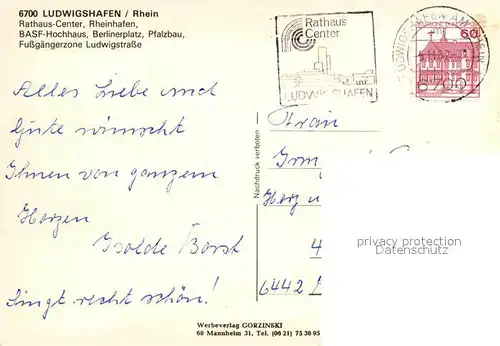 6700 LUDWIGSHAFEN / Rhein
Rathaus-Center, Rheinhafen,
BASF-Hochhaus, Berlinerplatz, Pfalzbau,
Fußgängerzone Ludwigstraße
Rathaus
Center
LUDWIGSHAFEN
LUDWIGSHAFEN AM RHEIN
6700
60
Alles Liebe und
Gute wünscht
Ihnen von ganzem
Herzen
Isolde Borst
Singt recht schön!
Nachdruck verboten
Frau
Irm
Herz
4
6442
privacy protection
Datenschutz
Werbeverlag GORZINSKI
68 Mannheim 31, Tel. (06 21) 75 36 95